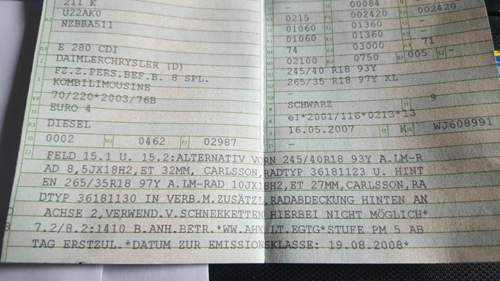 211 K
U22AK0
NZBBA511
E 280 CDI
DAIMLERCHRYSLER (D)
FZ.Z.PERS.BEF.B. 8 SPL.
KOMBILIMOUSINE
70/220*2003/76B
EURO 4
DIESEL
0002 0462 02987
- 00084 -
0215 002420 002420
01060 01360 -
01060 01360 -
74 03000 71
02100 0750 005 -
245/40 R18 93Y
265/35 R18 97Y XL
-
-
SCHWARZ 9
e1*2001/116*0213*13
16.05.2007 K WJ608991
FELD 15.1 U. 15.2:ALTERNATIV VORN 245/40R18 93Y A.LM-R
AD 8,5JX18H2,ET 32MM, CARLSSON,RADTYP 36181123 U. HINT
EN 265/35R18 97Y A.LM-RAD 10JX18H2,ET 27MM,CARLSSON,RA
DTYP 36181130 IN VERB.M.ZUSÄTZL.RADABDECKUNG HINTEN AN
ACHSE 2,VERWEND.V.SCHNEEKETTEN HIERBEI NICHT MÖGLICH*
7.2/8.2:1410 B.ANH.BETR.*WW.AHK LT.EGTG*STUFE PM 5 AB
TAG ERSTZUL.*DATUM ZUR EMISSIONSKLASSE: 19.08.2008*